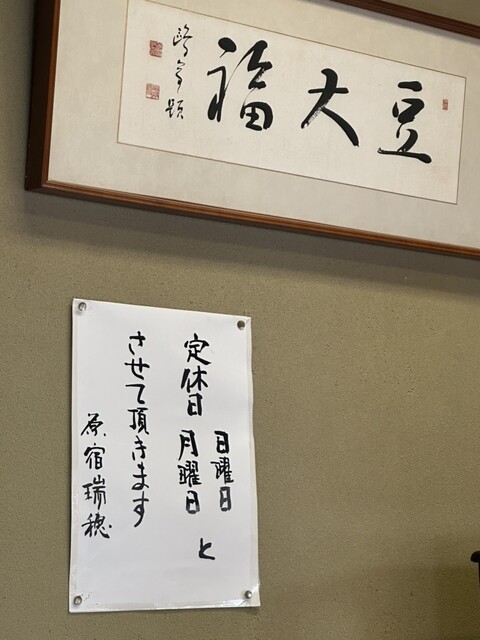 豆大福
定休日 日曜日
月曜日 と
させて頂きます
原宿瑞穂